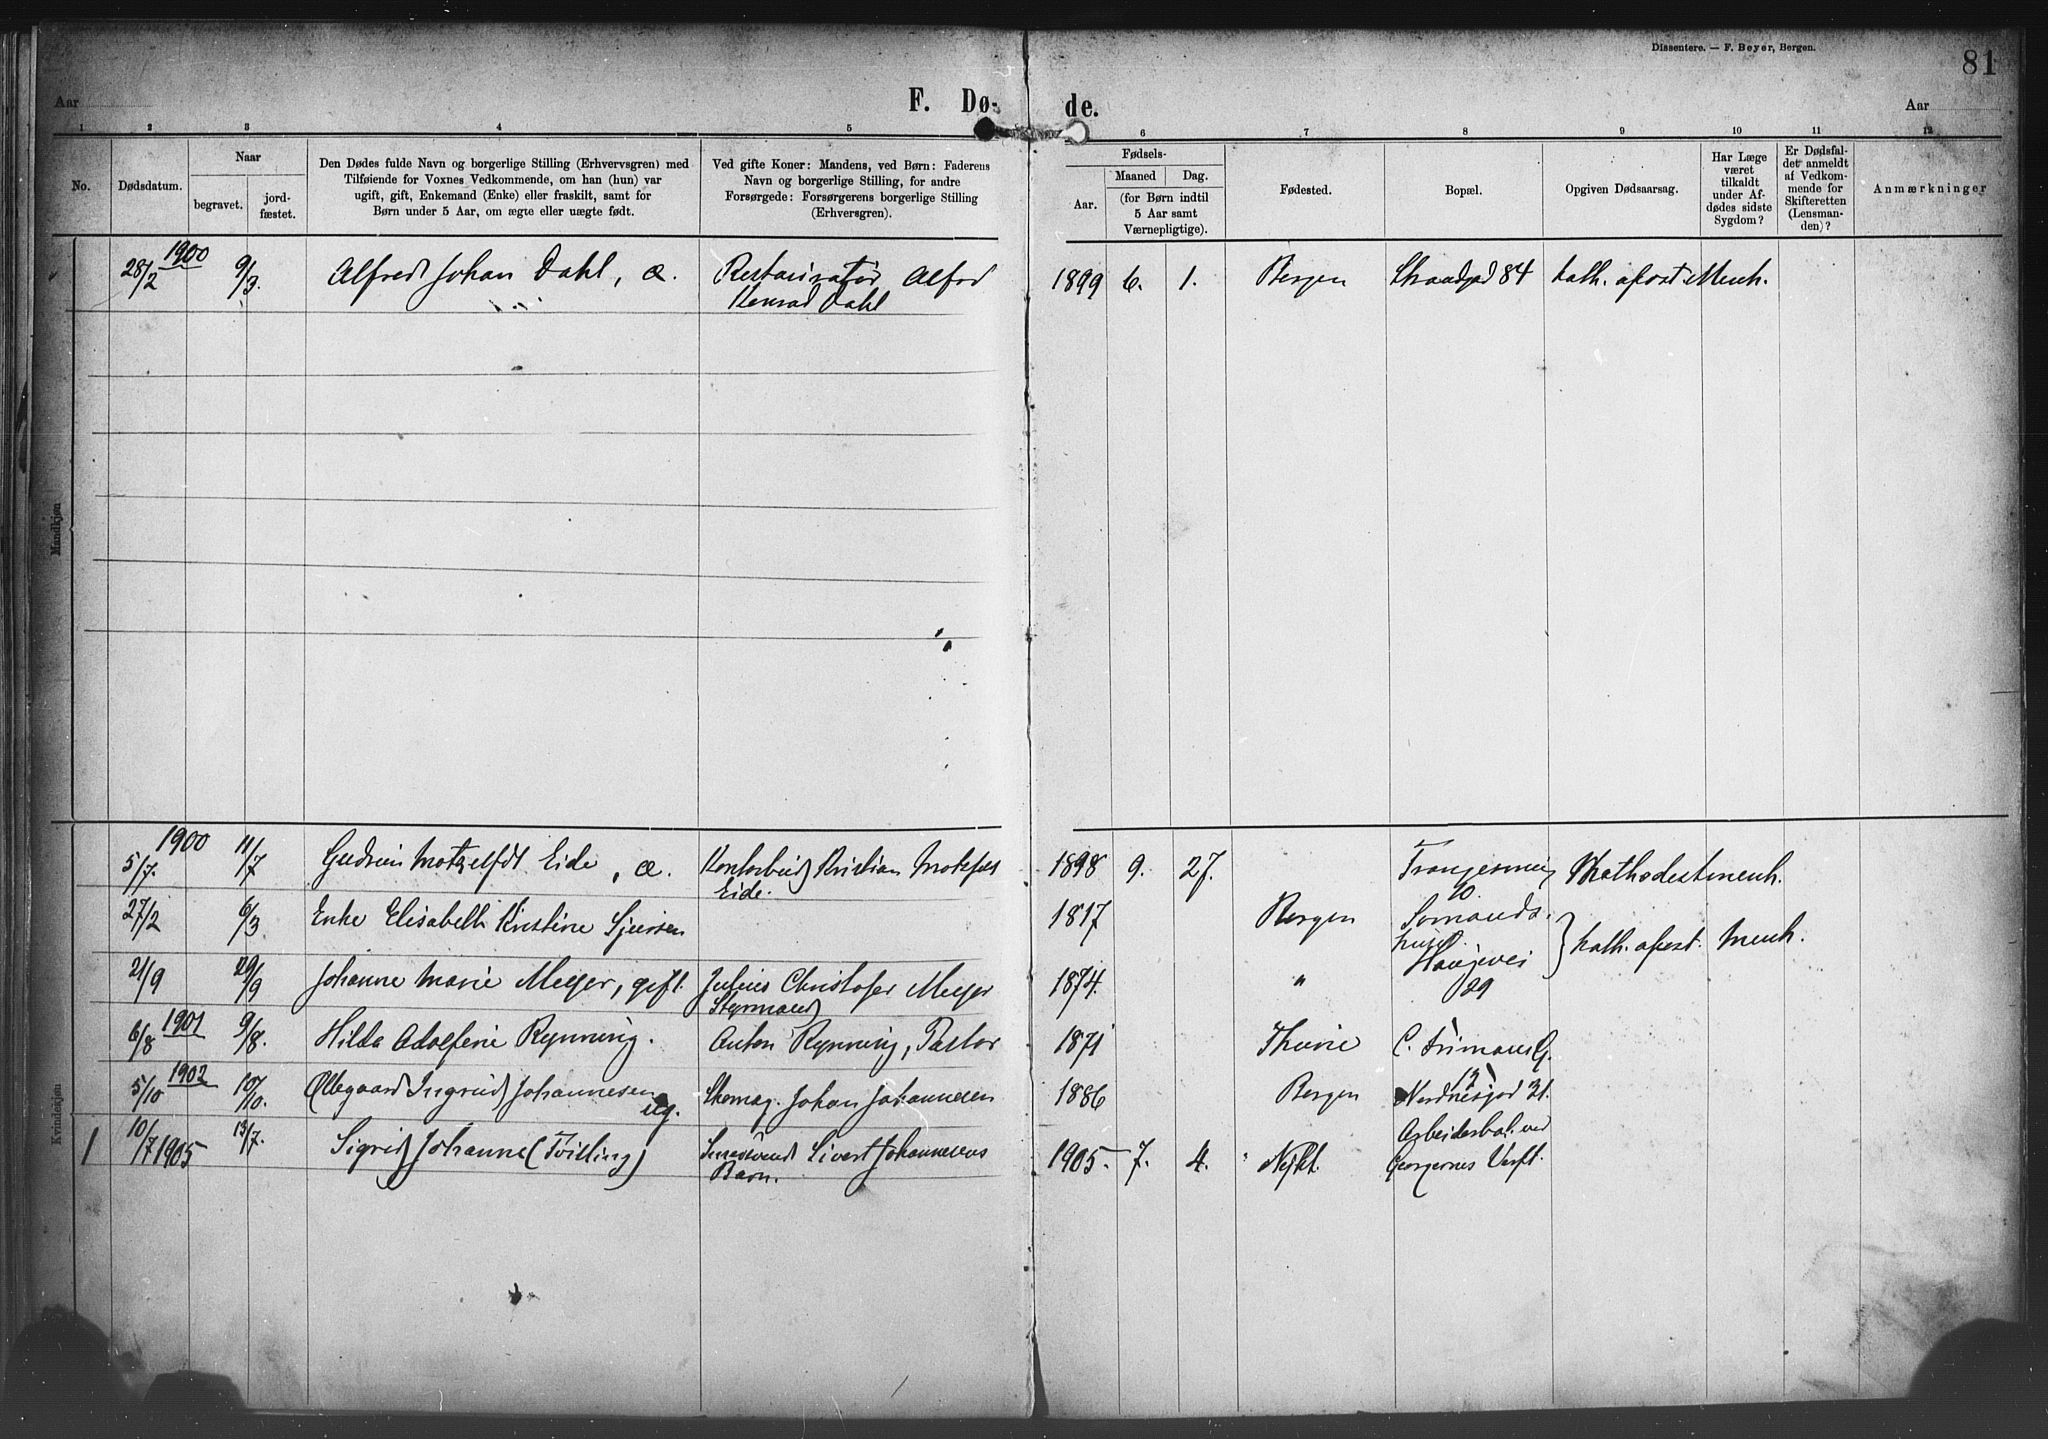 Dissentere. — F. Beyer, Bergen.
81
Aar
F. Dø-
de.
Aar
1 2 3 4 5 6 7 8 9 10 11 12
No.
Dødsdatum.
Naar
begravet.
jord-
fæstet.
Den Dødes fulde Navn og borgerlige Stilling (Erhvervsgren) med
Tilføiende for Voxnes Vedkommende, om han (hun) var
ugift, gift, Enkemand (Enke) eller fraskilt, samt for
Børn under 5 Aar, om ægte eller uægte født.
Ved gifte Koner: Mandens, ved Børn: Faderens
Navn og borgerlige Stilling, for andre
Forsørgede: Forsørgerens borgerlige Stilling
(Erhversgren).
Fødsels-
Aar.
Maaned
Dag.
(for Børn indtil
5 Aar samt
Værnepligtige).
Fødested.
Bopæl.
Opgiven Dødsaarsag.
Har Læge
været
tilkaldt
under Af-
dødes sidste
Sygdom?
Er Dødsfal-
det anmeldt
af Vedkom-
mende for
Skifteretten
(Lensman-
den)?
Anmærkninger
Mandkjøn
1900
28/2 9/3. Alfred Johan Dahl, æ. Restauratør Alfred 1899 6. 1. Bergen Strandgd 84 kath. apost. Menh.
Konrad Dahl
Kvindekjøn
1900
5/7. 11/7 Gudrun Motzelfdt Eide, æ. Kristian 1898 9. 27. Methodestmenh.
Eide. 10
27/2 6/3 Enke Elisabeth Kirstine Sjursen 1817 Bergen kath. apost. menh.
21/9 29/9 Johanne Marie Meyer, gift. Julius Christofer Meyer 1874. " Haugevei
Styrmand 29
1901
6/8 9/8. Hilda Adolfine Rynning. Anton Rynning, Pastor 1871 C. G.
1902 13
5/10 10/10. Ollegaard Ingrid Johannesen Skomag. Johan Johannesen 1886 Bergen Nordnesgd 31.
ug.
1 10/7 1905 13/7. Sigrid Johanne (Tvilling) Sivert Johannesens 1905. 7. 4. Arbeiderbol. ved
Barn. Georgernes Verft.